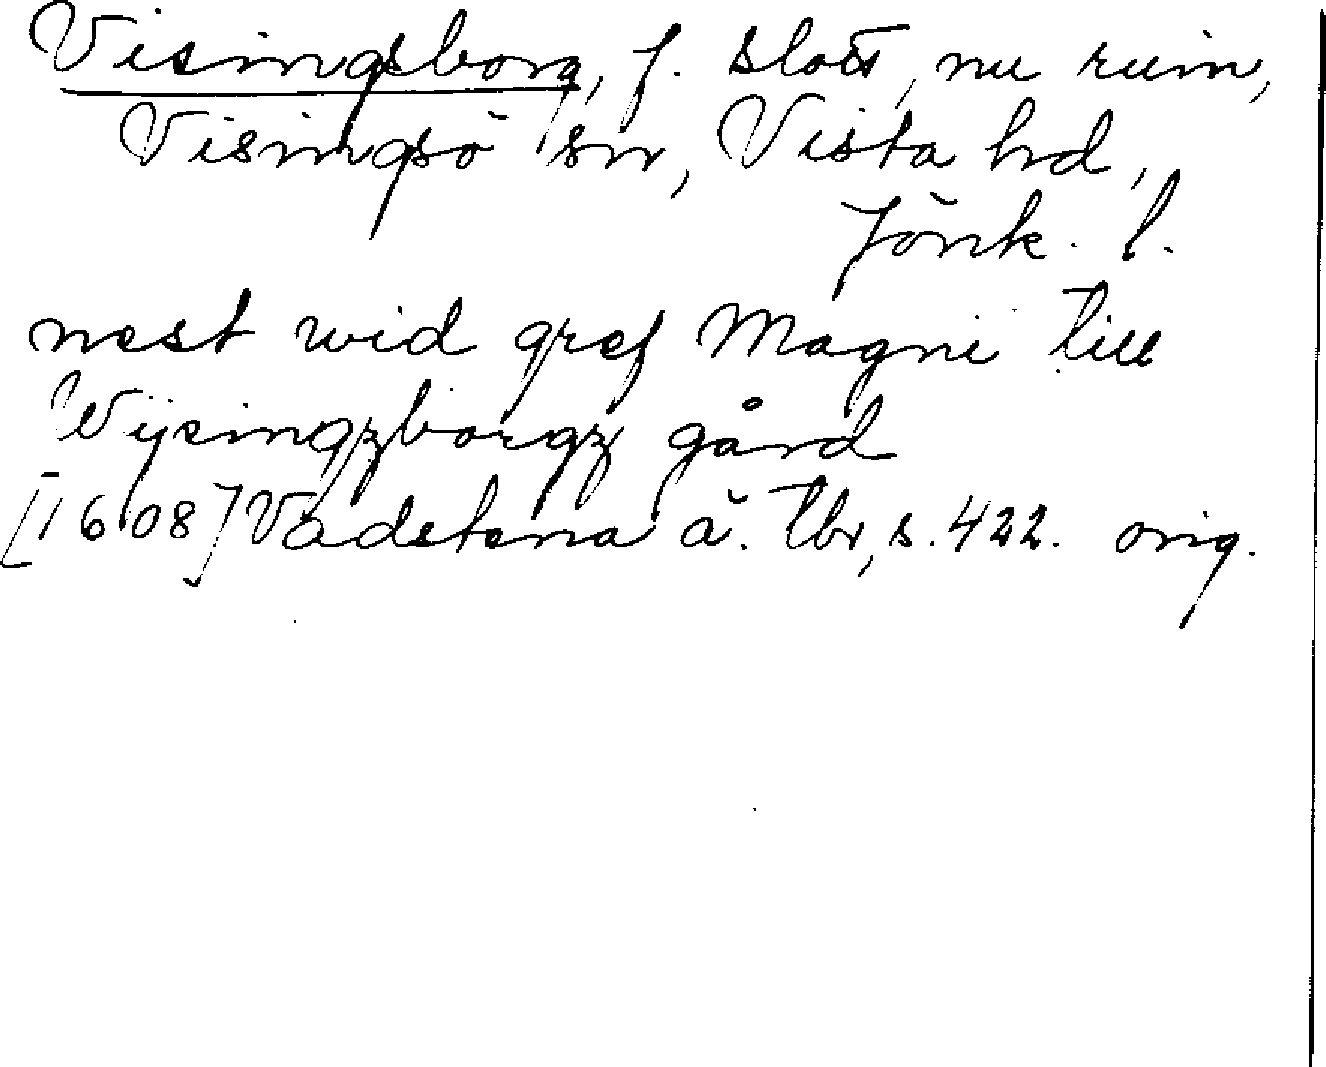 Visingsborg, f. slott, nu ruin,
Visingsö sn, Vista hd,
Jönk. l.
nest wid gref Magni till
Wijsingzborgz gård
[1608] Vadstena ä. tbr, s. 422. orig.